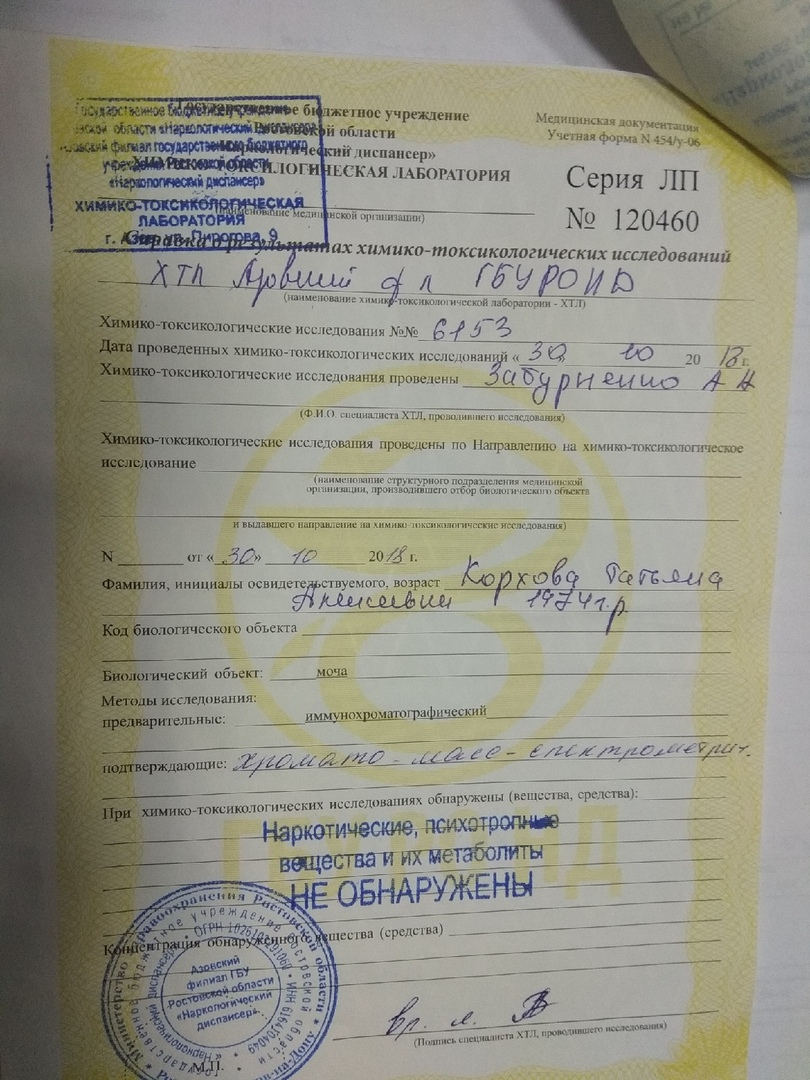 Государственное бюджетное учреждение
Ростовской области
«Наркологический диспансер»
ХИМИКО-ТОКСИКОЛОГИЧЕСКАЯ ЛАБОРАТОРИЯ
(наименование медицинской организации)
«Наркологический диспансер»
ХИМИКО-ТОКСИКОЛОГИЧЕСКАЯ
ЛАБОРАТОРИЯ
г. Азов, ул. Пирогова, 9
Медицинская документация
Учетная форма N 454/у-06
Серия ЛП
№ 120460
Справка о результатах химико-токсикологических исследований
ХТЛ Азовский ф л ГБУРОНД
(наименование химико-токсикологической лаборатории - ХТЛ)
Химико-токсикологические исследования №№ 6153
Дата проведенных химико-токсикологических исследований «30» 10 2018 г.
Химико-токсикологические исследования проведены А Н
(Ф.И.О. специалиста ХТЛ, проводившего исследования)
Химико-токсикологические исследования проведены по Направлению на химико-токсикологическое
исследование
(наименование структурного подразделения медицинской
организации, производившего отбор биологического объекта
и выдавшего направление на химико-токсикологические исследования)
N от «30» 10 2018 г.
Фамилия, инициалы освидетельствуемого, возраст Корхова Татьяна
1974г.р
Код биологического объекта
Биологический объект: моча
Методы исследования:
предварительные: иммунохроматографический
подтверждающие: хромато-масс-спектрометрич.
При химико-токсикологических исследованиях обнаружены (вещества, средства):
Наркотические, психотропные
вещества и их метаболиты
НЕ ОБНАРУЖЕНЫ
Концентрация обнаруженного вещества (средства)
Азовский
филиал ГБУ
Ростовской области
«Наркологический
диспансер»
вр. л.
(Подпись специалиста ХТЛ, проводившего исследования)
М.П.